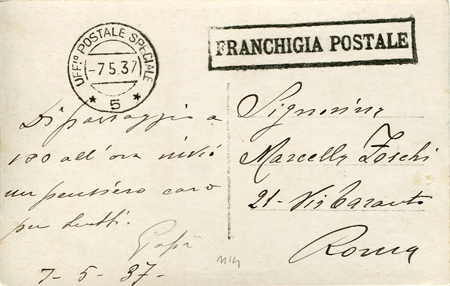 UFFIO POSTALE SPECIALE
-7.5.37
5
FRANCHIGIA POSTALE
Di passaggio a
100 all'ora invio
un pensiero caro
per tutti.
Papà
7-5-37-
Signorina
Marcella Foschi
21- Via Taranto
Roma